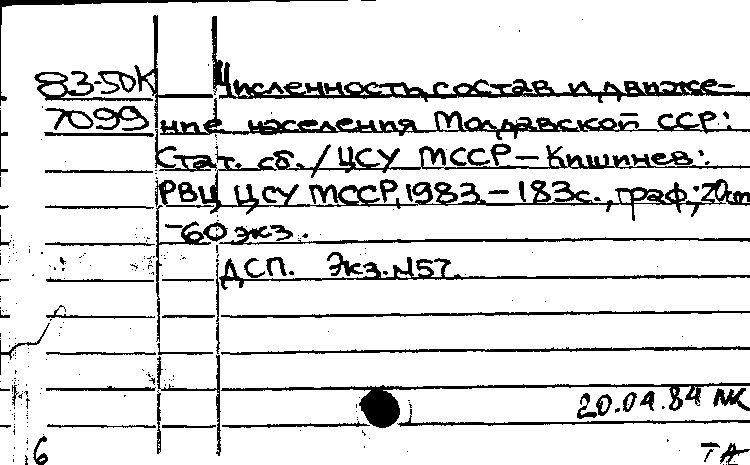 83-50К Численность, состав и движе-
7099 ние населения Молдавской ССР:
Стат. сб. / ЦСУ МССР. - Кишинев:
РВЦ ЦСУ МССР, 1983. - 183с., граф.; 20см
- 60 экз.
ДСП. Экз. N57.
20.04.84 МК
6 ТА